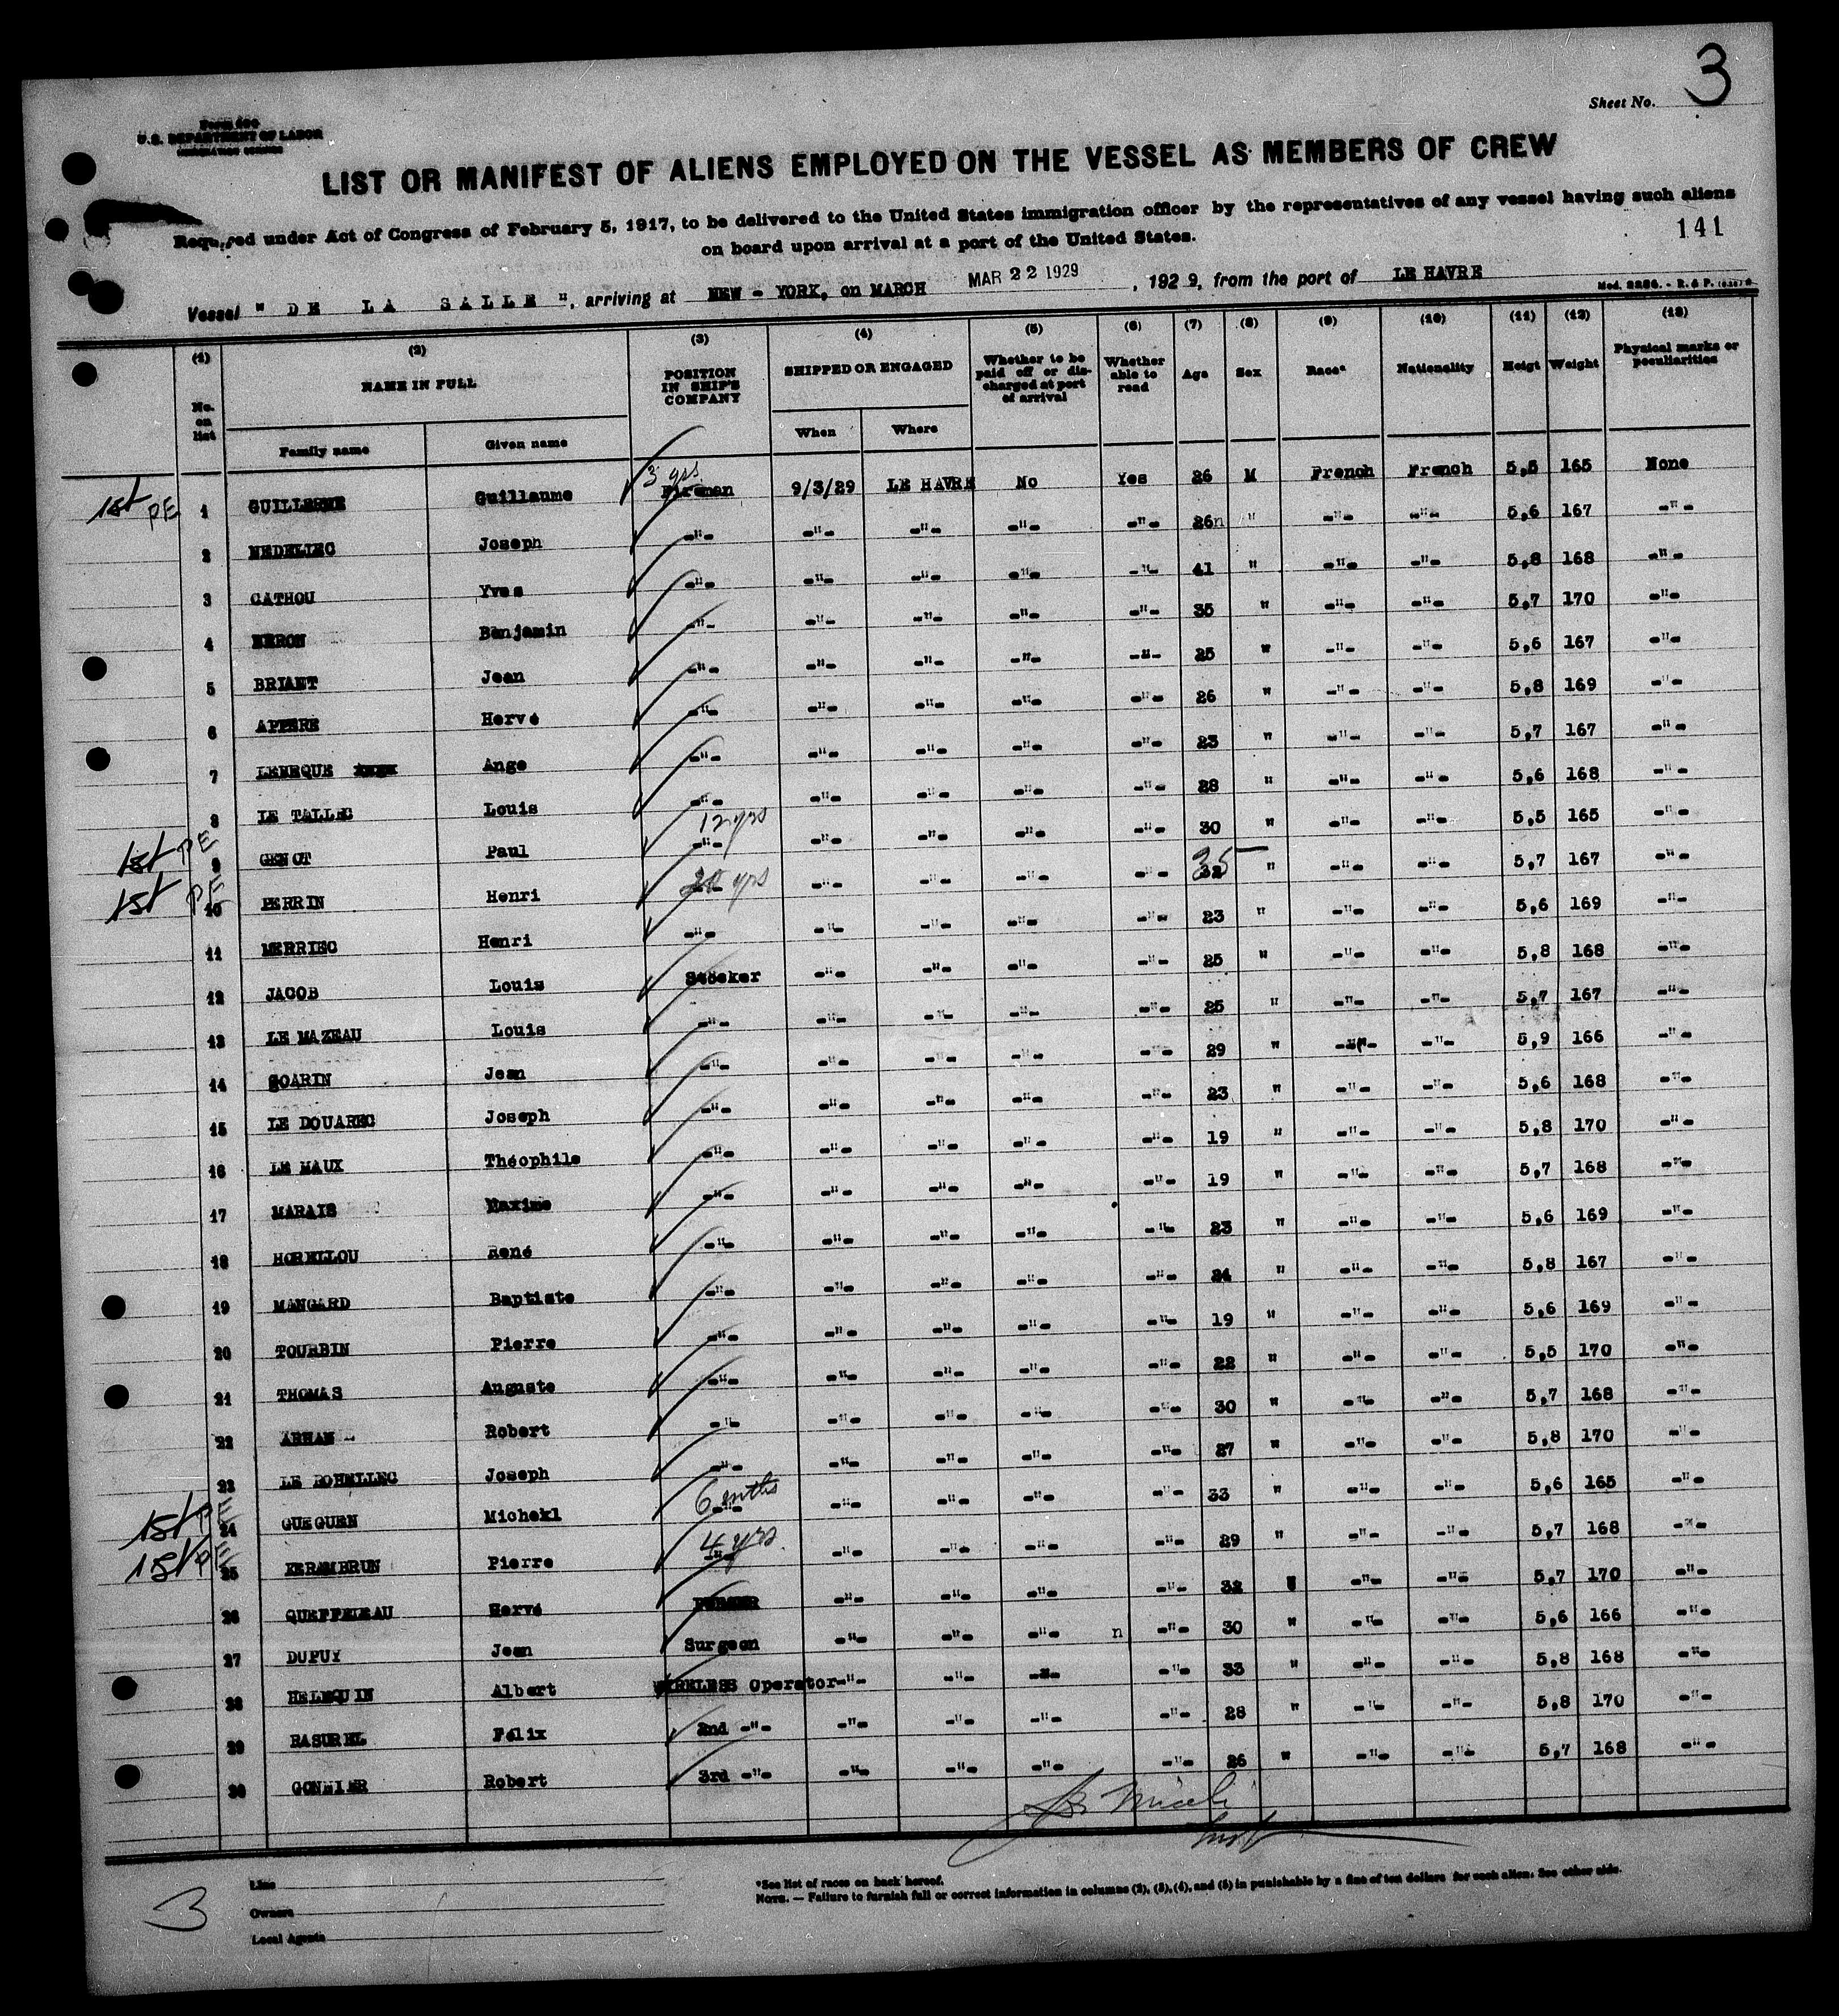 Sheet No. 3
U.S. DEPARTMENT OF LABOR
LIST OR MANIFEST OF ALIENS EMPLOYED ON THE VESSEL AS MEMBERS OF CREW
Required under Act of Congress of February 5, 1917, to be delivered to the United States immigration officer by the representatives of any vessel having such aliens
on board upon arrival at a port of the United States.
141
Vessel " DE LA SALLE ", arriving at NEW - YORK, on MARCH MAR 22 1929, 1929, from the port of LE HAVRE
(1) (2) (3) (4) (5) (6) (7) (8) (9) (10) (11) (12) (13)
No. on list NAME IN FULL POSITION IN SHIP'S COMPANY SHIPPED OR ENGAGED Whether to be paid off or discharged at port of arrival Whether able to read Age Sex Race* Nationality Heigt Weight Physical marks or peculiarities
Family name Given name When Where
1st PE 1 GUILLERME Guillaume 3 yrs Fireman 9/3/29 LE HAVRE No Yes 26 M French French 5,5 165 None
2 NEDELLEC Joseph -"- -"- -"- -"- -"- 26n " -"- -"- 5,6 167 -"-
3 CATHOU Yves -"- -"- -"- -"- -"- 41 " -"- -"- 5,8 168 -"-
4 NERON Benjamin -"- -"- -"- -"- -"- 35 " -"- -"- 5,7 170 -"-
5 BRIANT Jean -"- -"- -"- -"- -"- 25 " -"- -"- 5,6 167 -"-
6 APPERE Hervé -"- -"- -"- -"- -"- 26 " -"- -"- 5,8 169 -"-
7 LEBEQUE Ange -"- -"- -"- -"- -"- 23 " -"- -"- 5,7 167 -"-
8 LE TALLEC Louis -"- -"- -"- -"- -"- 28 " -"- -"- 5,6 168 -"-
1st PE 9 GENOT Paul 12 yrs -"- -"- -"- -"- -"- 30 " -"- -"- 5,5 165 -"-
1st PE 10 PERRIN Henri yrs -"- -"- -"- -"- 35 " -"- -"- 5,7 167 -"-
11 MERRIEC Henri -"- -"- -"- -"- -"- 23 " -"- -"- 5,6 169 -"-
12 JACOB Louis Stocker -"- -"- -"- -"- 25 " -"- -"- 5,8 168 -"-
13 LE MAZEAU Louis -"- -"- -"- -"- -"- 25 " -"- -"- 5,7 167 -"-
14 GOARIN Jean -"- -"- -"- -"- -"- 29 " -"- -"- 5,9 166 -"-
15 LE DOUAREC Joseph -"- -"- -"- -"- -"- 23 " -"- -"- 5,6 168 -"-
16 LE MAUX Théophile -"- -"- -"- -"- -"- 19 " -"- -"- 5,8 170 -"-
17 MARAIS Maxime -"- -"- -"- -"- -"- 19 " -"- -"- 5,7 168 -"-
18 HORELLOU René -"- -"- -"- -"- -"- 23 " -"- -"- 5,6 169 -"-
19 MANGARD Baptiste -"- -"- -"- -"- -"- 24 " -"- -"- 5,8 167 -"-
20 TOURBIN Pierre -"- -"- -"- -"- -"- 19 " -"- -"- 5,6 169 -"-
21 THOMAS Auguste -"- -"- -"- -"- -"- 22 " -"- -"- 5,5 170 -"-
22 ARHAN Robert -"- -"- -"- -"- -"- 30 " -"- -"- 5,7 168 -"-
23 LE ROHELLEC Joseph -"- -"- -"- -"- -"- 27 " -"- -"- 5,8 170 -"-
1st PE 24 GUEGUEN Michekl 6 mths -"- -"- -"- -"- -"- 33 " -"- -"- 5,6 165 -"-
1st PE 25 KERAMBRUN Pierre 4 yrs. -"- -"- -"- -"- -"- 29 " -"- -"- 5,7 168 -"-
26 QUEFFELEAU Hervé -"- -"- -"- -"- 32 " -"- -"- 5,7 170 -"-
27 DUPUY Jean Surgeon -"- -"- -"- n -"- 30 " -"- -"- 5,6 166 -"-
28 HELEQUIN Albert WIRELESS Operator -"- -"- -"- -"- 33 " -"- -"- 5,8 168 -"-
29 BASUREL Félix 2nd -"- -"- -"- -"- -"- 28 " -"- -"- 5,8 170 -"-
30 GONNIER Robert 3rd -"- -"- -"- -"- -"- 26 " -"- -"- 5,7 168 -"-
3
Line
Owners
Local Agents
*See list of races on back hereof.
NOTE. — Failure to furnish full or correct information in columns (2), (3), (4), and (5) in punishable by a fine of ten dollars for each alien. See other side.